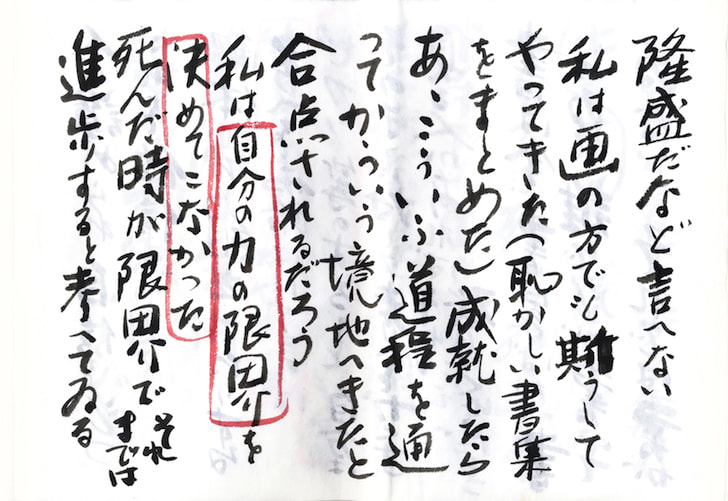 隆盛だなど言へない
私は画の方でも斯うして
やってきた(恥かしい書集
をまとめた)成就したら
あゝこういふ道程を通
ってかういう境地へきたと
合点されるだろう
私は自分の力の限界を
決めてこなかった
死んだ時が限界でそれまでは
進歩すると考へてゐる